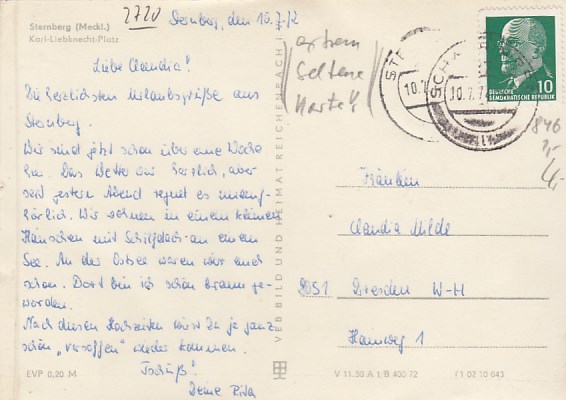 2720
Sternberg, den 10.7.72
Sternberg (Meckl.)
Karl-Liebknecht-Platz
Liebe Claudia!
Die herzlichsten Urlaubsgrüße aus
Sternberg.
Wir sind jetzt schon über eine Woche
hier. Das Wetter war herrlich, aber
seit gestern Abend regnet es unauf-
hörlich. Wir wohnen in einem kleinen
Häuschen mit Schilfdach an einem
See. An der Ostsee waren wir auch
schon. Dort bin ich schön braun ge-
worden.
Nach diesen Hochzeiten wirst Du ja ganz
schön „versoffen" wieder kommen.
Tschüß!
Deine Rita
EVP 0,20 M
VEB BILD UND HEIMAT REICHENBACH I
extrem
Seltene
Karte!
10
DEUTSCHE
DEMOKRATISCHE REPUBLIK
ST
10.7
SCH
10.7.7
846
1,-
4,-
Fräulein
Claudia Milde
8051 Dresden W-H
Hainweg 1
V 11 50 A 1/B 400/72
01 02 10 043